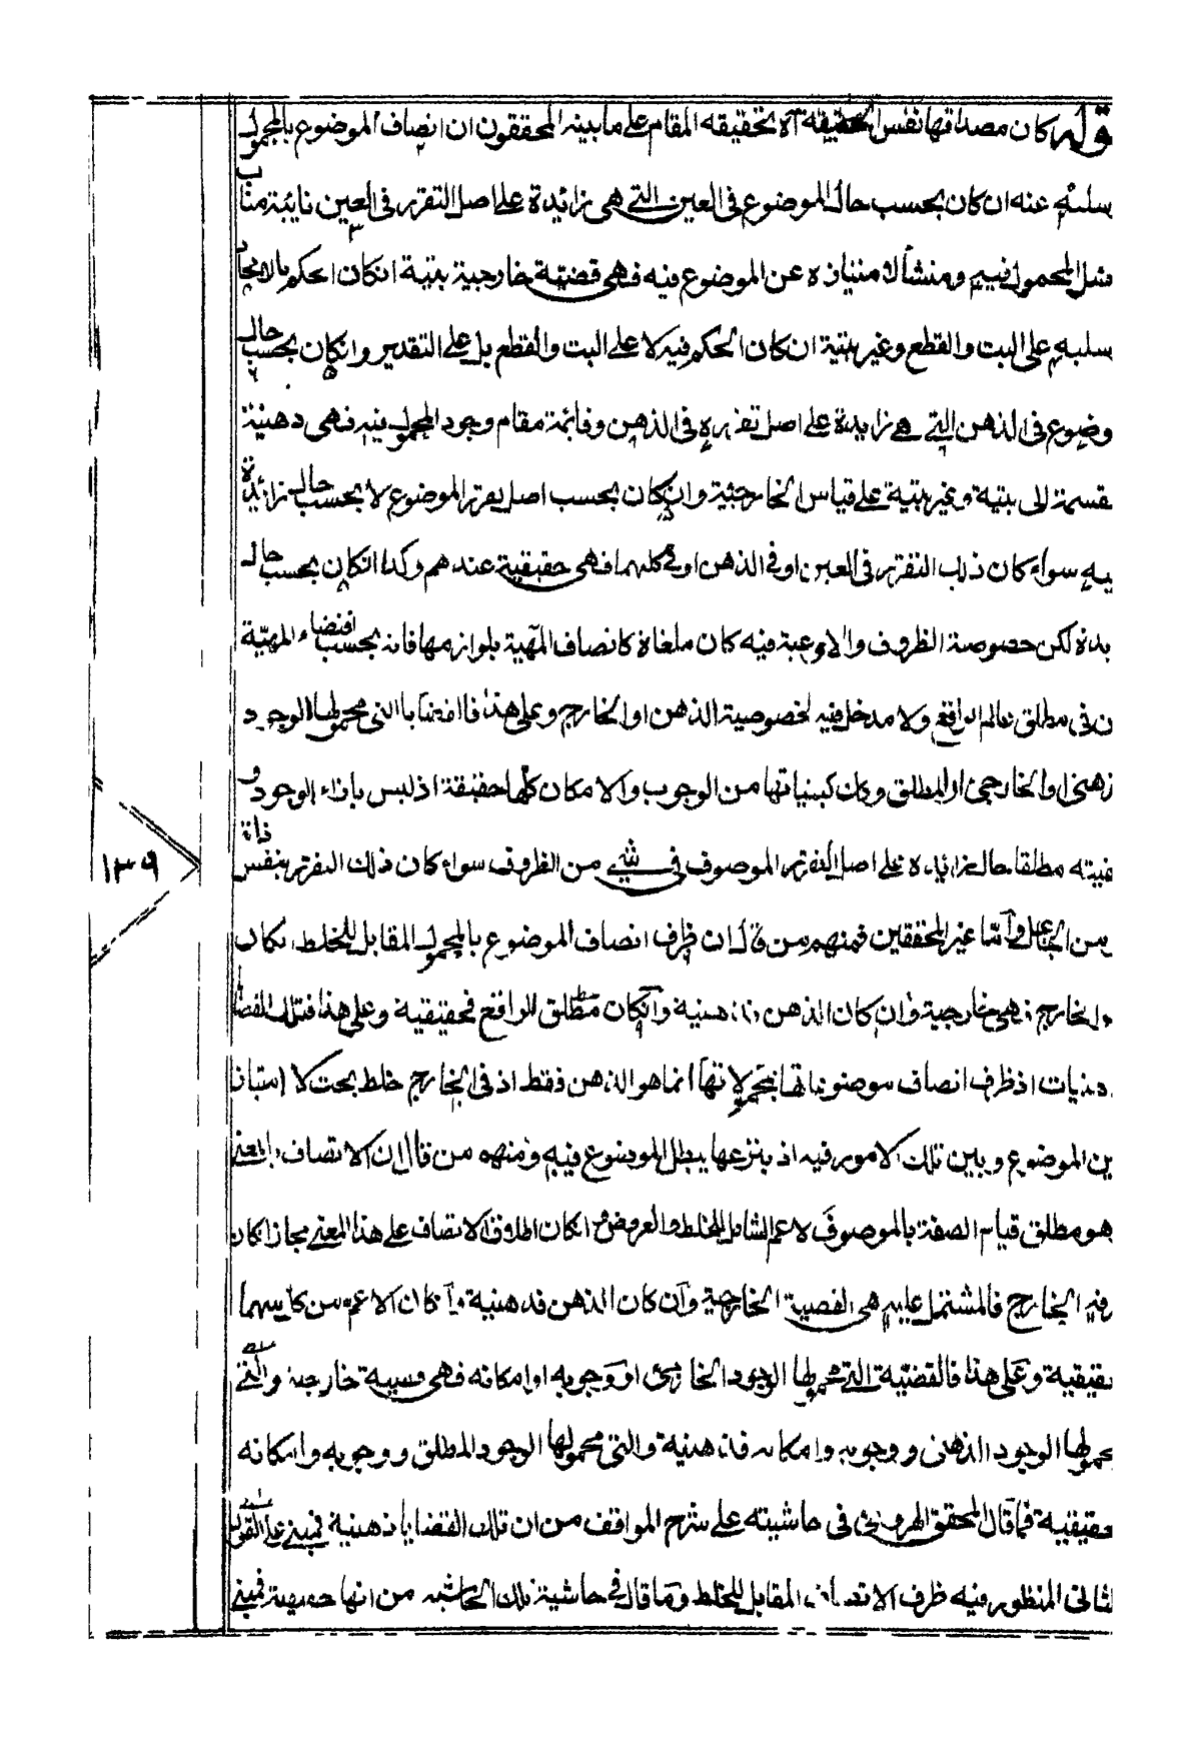 قوله كان مصداقها نفس الحقيقة آه تحقيقه المقام على ما بينه المحققون ان اتصاف الموضوع بالمحمول
سلبه عنه ان كان بحسب حال الموضوع فى العين التى هى زائدة على اصل التقرر فى العين نائبة مناب
المحمول فيه ومنشأ لامتيازه عن الموضوع فيه فهى قضية خارجية بتية انكان الحكم بالايجاد
سلبه على البت والقطع وغير بتية ان كان الحكم فيه لا على البت والقطع بل على التقدير وانكان بحسب حال
وضوع فى الذهن التى هى زايدة على اصل تقرره فى الذهن وقائمة مقام وجود المحمول فيه فهى ذهنية
قسمة الى بتية وغير بتية على قياس الخارجية وانكان بحسب اصل تقرر الموضوع لا بحسب حال زائدة
يه سواء كان ذلك التقرر فى العين او فى الذهن او فى كليهما فهى حقيقية عندهم وكذا انكان بحسب حال
بدة لكن خصوصية الظروف والاوعية فيه كان ملغاة كاتصاف المهية بلوازمها فانه بحسب اقتضاء المهية
ن فى مطلق عالم الواقع ولا مدخل فيه لخصوصية الذهن او الخارج وعلى هذا فالقضايا التى محمولها الوجود
ذهنى او الخارجى او المطلق وكيفياتها من الوجوب والامكان كلها حقيقة اذ ليس بازاء الوجود و
مطلقا حال زائدة على اصل التقرر الموصوف فى شئ من الظروف سواء كان ذلك التقرر بنفس ذاته
من الجاعل وآما غير المحققين فمنهم من قال ان ظرف اتصاف الموضوع بالمحمول المقابل للخلط انكان
والخارج فهى خارجية وان كان الذهن فذهنية وآنكان مطلق الواقع فحقيقية وعلى هذا فتلك القضايا
ذهنيات اذ ظرف اتصاف موضوعاتها بمحمولاتها انما هو الذهن فقط اذ فى الخارج خلط بحت لا امتياز
ين الموضوع وبين تلك الامور فيه اذ بنزعها يبطل الموضوع فيه ومنهم من قال ان الاتصاف بالمعنى
هو مطلق قيام الصفة بالموصوف الاعم الشامل للخلط والعروض انكان اطلاق الاتصاف على هذا المعنى مجازا كان
رفيه الخارج فالمشتمل عليه هى القضية الخارجية وآن كان الذهن فذهنية وآنكان الاعم من كليهما
حقيقية وعلى هذا فالقضية التى محمولها الوجود الخارجى او وجوبه او امكانه فهى قضية خارجية والتى
محمولها الوجود الذهنى ووجوبه وامكانه فذهنية والتى محمولها الوجود المطلق ووجوبه وامكانه
حقيقية فما قال المحقق الهروى فى حاشيته على شرح المواقف من ان تلك القضايا ذهنية فمبنى على القول
الثانى المنظور فيه ظرف الاتصاف المقابل للخلط وما قال فى حاشية تلك الحاشية من انها حقيقية فمبنى
١٣٩